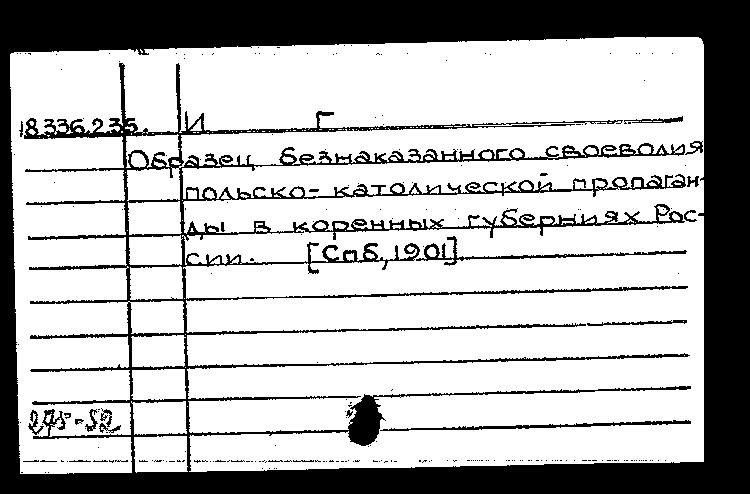 18.336.2.35. И Г
Образец безнаказанного своеволия
польско-католической пропаган-
ды в коренных губерниях Рос-
сии. [Спб, 1901].
275-52